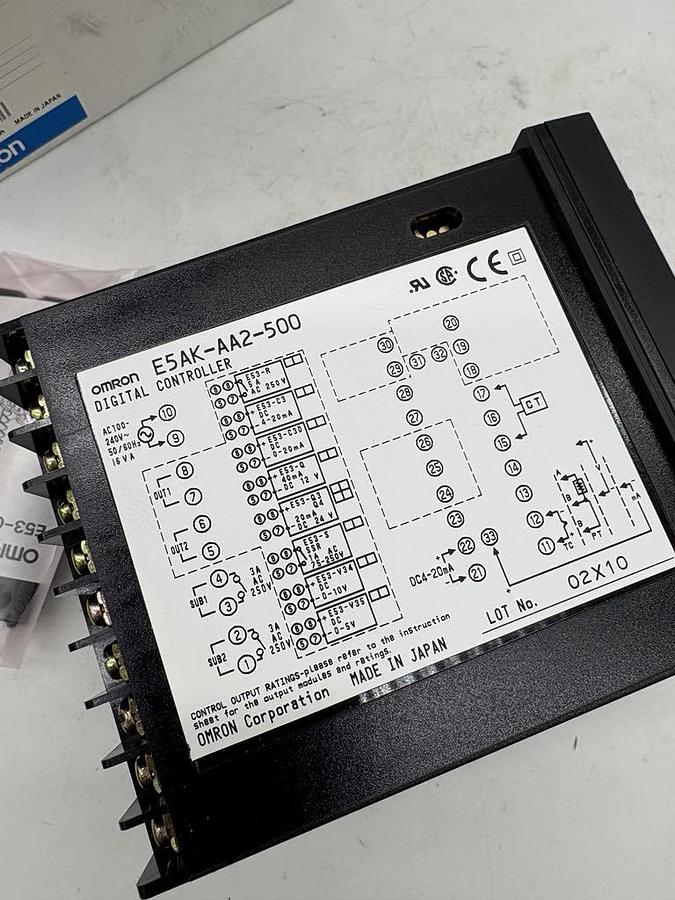 MADE IN JAPAN
on
omron E5AK-AA2-500
DIGITAL CONTROLLER
AC100-
240V~
50/60Hz
16VA
10
9
8
OUT1
7
6
OUT2
5
4
SUB1
3
3A
AC
250V
2
SUB2
1
3A
AC
250V
E53-R
5A
AC 250V
E53-C3
DC
4-20mA
E53-C3D
DC
0-20mA
E53-Q
40mA
DC 12 V
E53-Q3
Q4
20mA
DC 24 V
E53-S
SSR
1A AC
75-250V
E53-V34
DC
0-10V
E53-V35
DC
0-5V
30
29
31
32
20
19
18
28
27
26
25
24
23
22
21
33
DC4-20mA
17
16
15
CT
14
13
12
11
A
B
B
TC
PT
V
mA
LOT No. 02X10
CONTROL OUTPUT RATINGS-please refer to the instruction
sheet for the output modules and ratings.
OMRON Corporation MADE IN JAPAN
E53-
OMRO